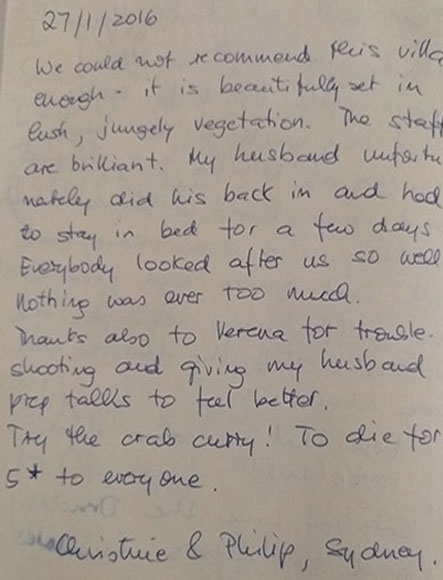 27/1/2016
We could not recommend this villa
enough - it is beautifully set in
lush, jungely vegetation. The staff
are brilliant. My husband unfortu
nately did his back in and had
to stay in bed for a few days
Everybody looked after us so well
Nothing was ever too much.
Thanks also to Verena for trouble-
shooting and giving my husband
pep talks to feel better.
Try the crab curry! To die for
5* to everyone.
Christine & Philip, Sydney.